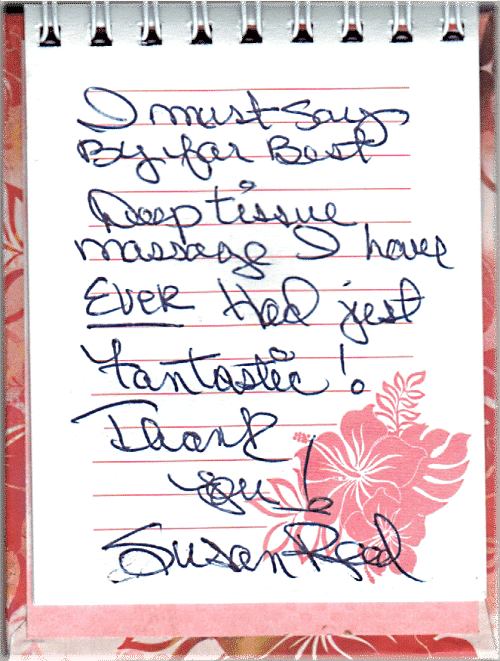 I must say
By far Best
Deep tissue
massage I have
EVER Had just
fantastic!
Thank
you!
Susan Reed